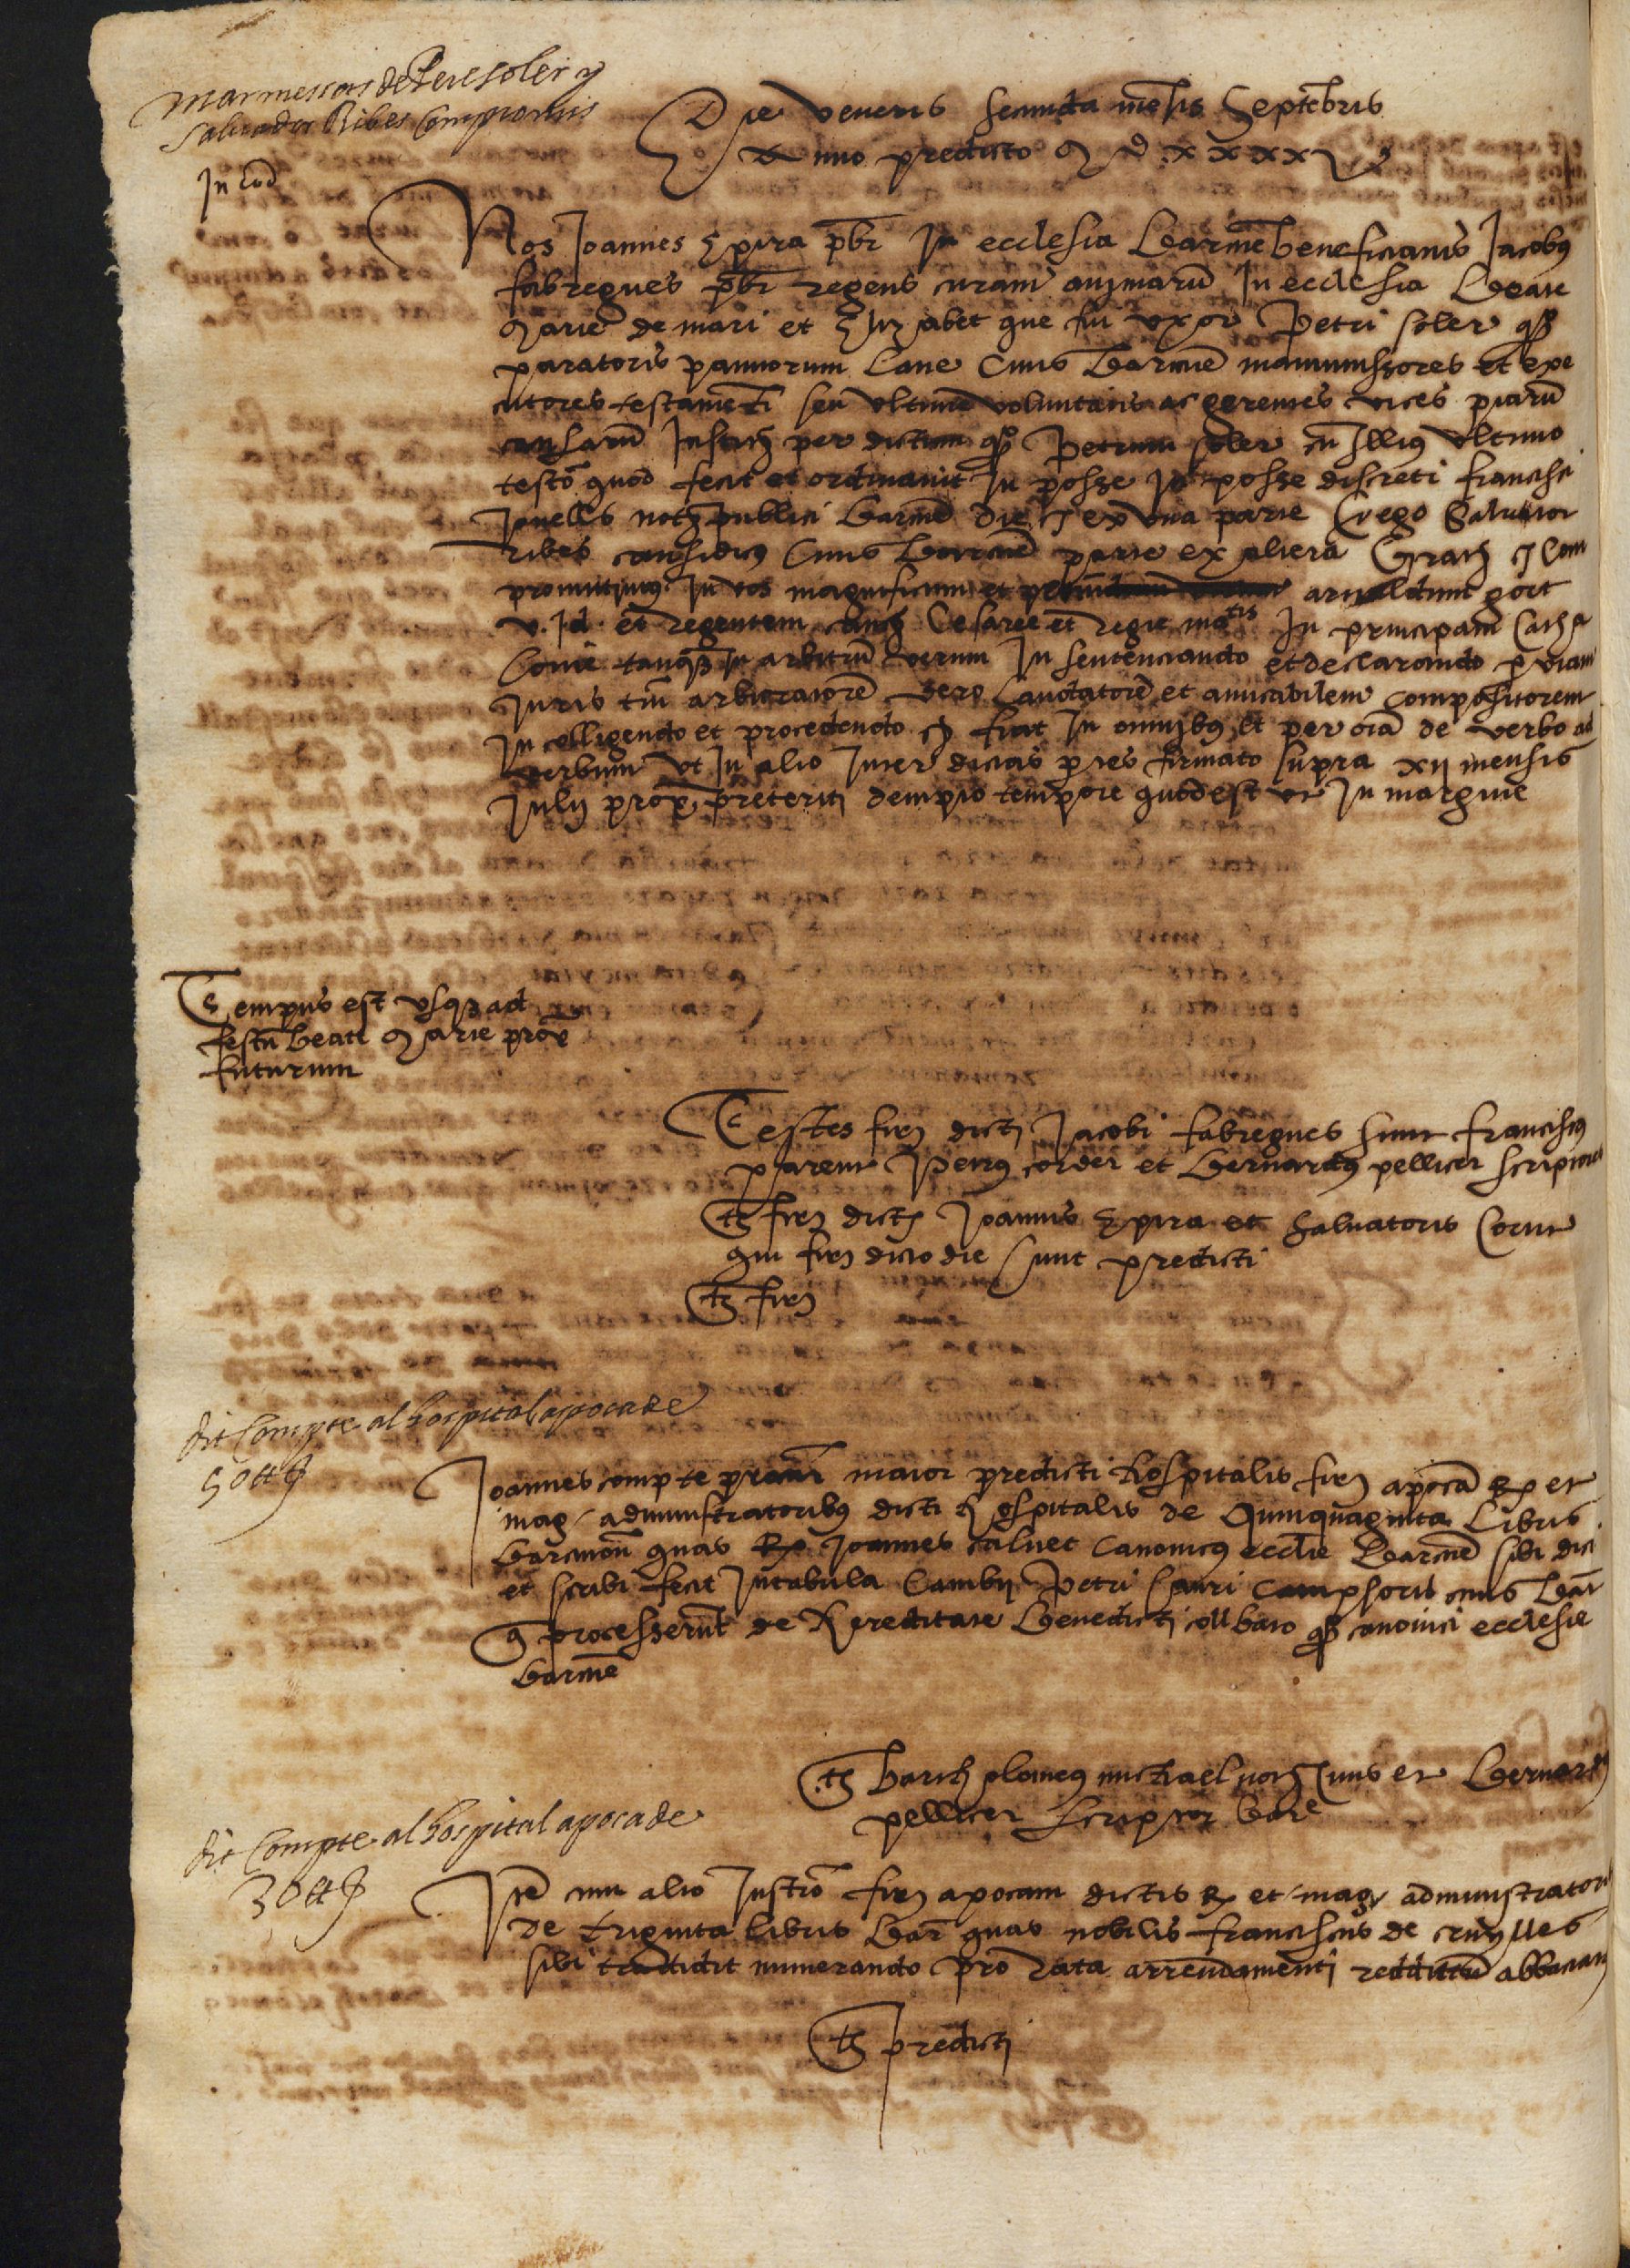 Marmessors de Pere soler y
Salvador Ribes Compromis
In Cod
Die veneris secunda mēsis Septēbris
Anno predicto M D xxxx
Nos Joannes Spira p̄br In ecclesia barc̄ne beneficiatus Jacobus
fabregues p̄br regens curam animarū In ecclesia beate
Marie de mari et Elizabet que fui uxor Petri soler q̊
paratoris pannorum lane Civis barcin̄e manumissores et exe
cutores testamēti seu ultime voluntatis ac gerentes vices piarū
causarū per dictum q̊ Petrum soler cū Illius ultimo
testō quod fecit et ordinavit In posse In posse discreti francisci
Jovells not publici barcin̄e die ex una parte Et ego Salvator
ribes causidicus Civis barcin̄e parte ex altera Gratis Com
promittimus In vos magnificum et arnaldum gort
v. J d et regentem Cesaree et regie ma^tis In principatu Cath a
lonie tanq̄ In arbitrū verum In sentenciando et declarando p viam
Juris tm̄ arbitratorē vero laudatorē et amicabilem compositorem
In colligendo et procedendo fiat In omnibus et per oīa de verbo ad
verbum ut In alio Inter dictas ptes firmato supra xij mensis
Julij prox preteriti dempto tempore quod est ut In margine
Tempus est usq̄ ad
festū beate Marie prox
futurum
Testes fir dicti Jacobi fabregues sunt franciscus
parent Petrus corder et bernardus pellicer scriptores
Ts fir dicti Joannis Spira et Salvatoris
qui fir dicto die sunt predicti
Ts fir
dit Compte al hospital apoca de
50 ₶
Joannes compte maior predicti hospitalis fir apocā R et
mag administratoribus dicti hospitalis de Quinquaginta libris
barcinoñ quas R Joannes calvet Canonicus ecclīe barcin̄e sibi dici
et scribi fecit In tabula Cambij Petri sauri campsoris civis bar̄
q processerūt de hereditate benedicti collbato q̊ canonici ecclesie
barcin̄e
Ts bartholomeus michael not Civis et bernard
pellicer scriptor barc̄
dit Compte al hospital apoca de
30 ₶
Itē cum alio Instrō fir apocam dictis R et mag administratori
de triginta libris bar̄ quas nobilis franciscus de cruylles
sibi tradidit numerando pro rata arrendamenti reddituū
Ts predicti